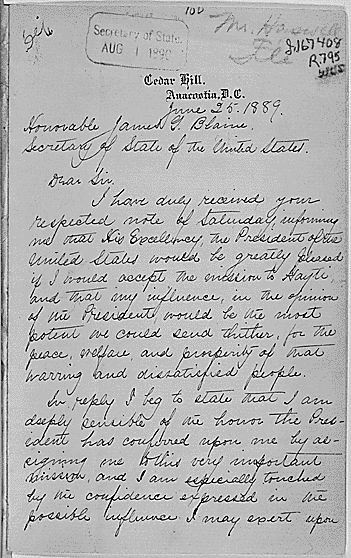 Secretary of State.
AUG 1 1890
Mr. Haswell
File
Cedar Hill.
Anacostia, D.C.
June 25. 1889.
Honorable James G. Blaine.
Secretary of State of the United States.
Dear Sir.
I have duly received your
respected note of Saturday, informing
me that His Excellency, the President of the
United States would be greatly pleased
if I would accept the mission to Hayti,
and that my influence, in the opinion
of the President would be the most
potent we could send thither, for the
peace, welfare, and prosperity of that
warring and dissatisfied people.
In reply I beg to state that I am
deeply sensible of the honor the Pres-
ident has conferred upon me by as-
signing me to this very important
mission, and I am especially touched
by the confidence expressed in the
possible influence I may exert upon